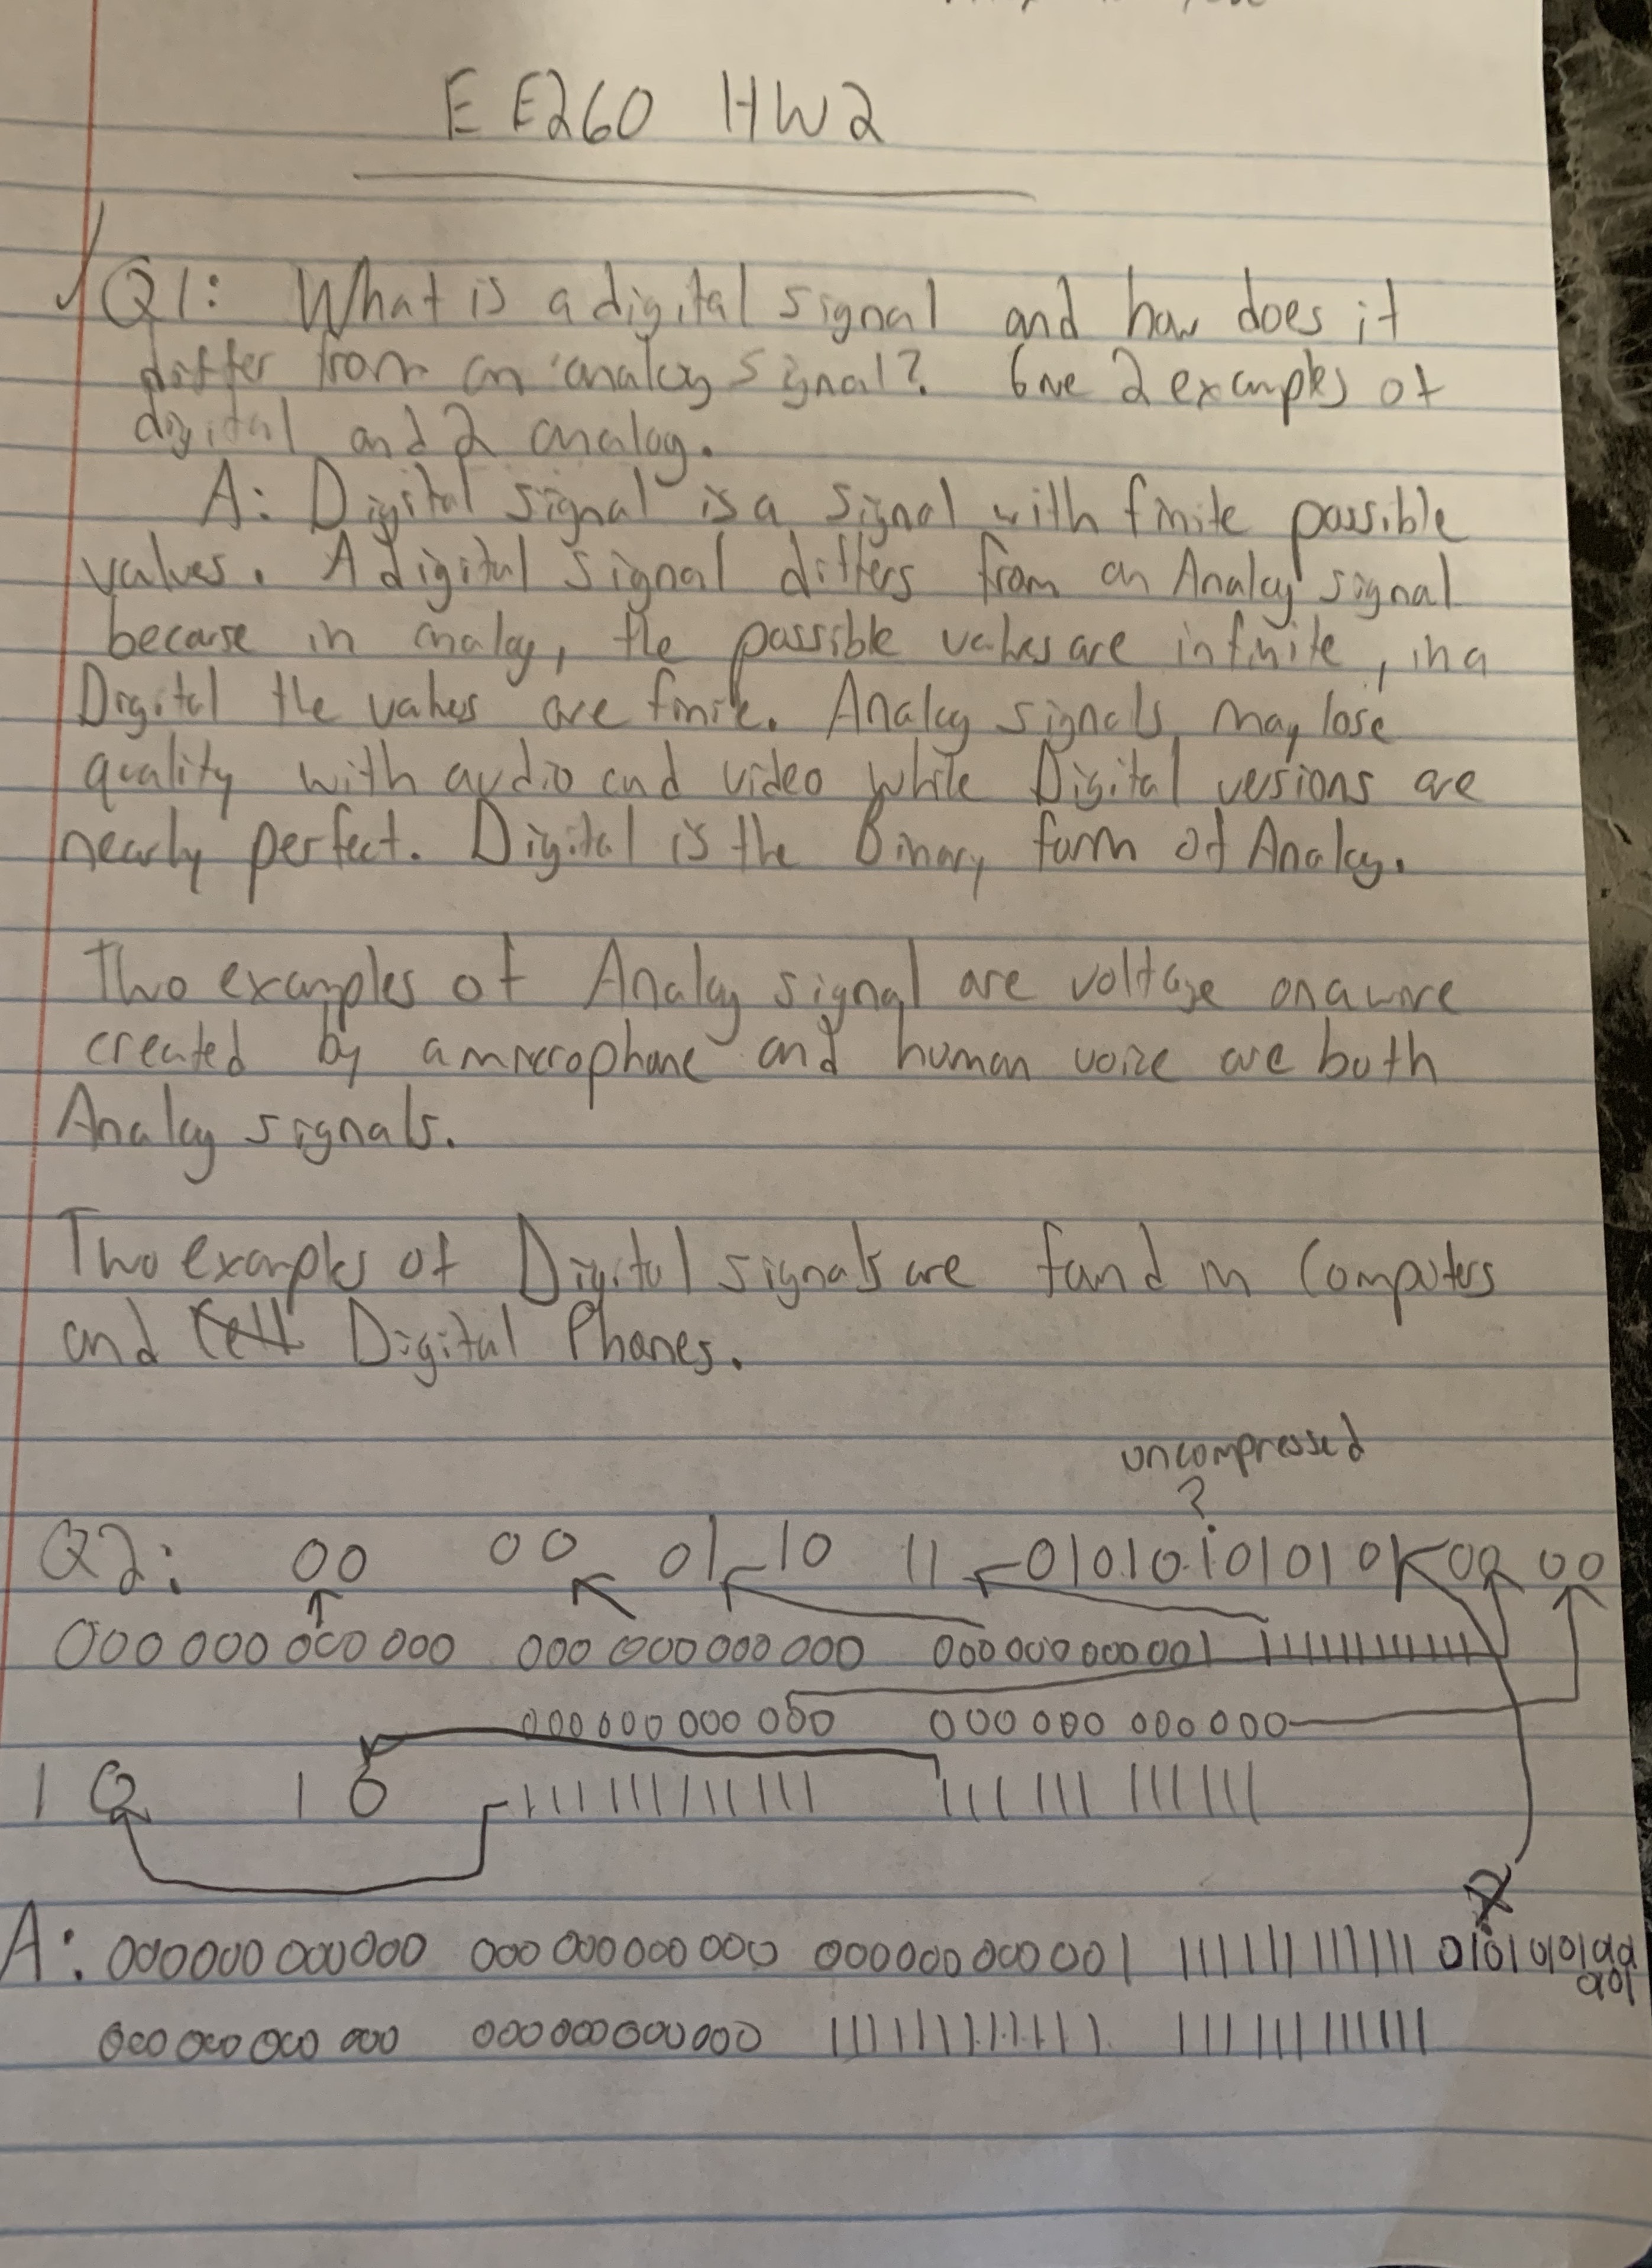 EE260 HW2
Q1: What is a digital signal and how does it
differ from an analog signal? Give 2 examples of
digital and 2 analog.
A: Digital signal is a signal with finite possible
values. A digital signal differs from an Analog signal
because in analog, the possible values are infinite, in a
Digital the values are finite. Analog signals may lose
quality with audio and video while Digital versions are
nearly perfect. Digital is the Binary form of Analog.
Two examples of Analog signal are voltage on a wire
created by a microphone and human voice are both
Analog signals.
Two examples of Digital signals are found in Computers
and Cell Digital Phones.
uncompressed
?
Q2: 00 00 01 10 11 010101010101 00 00
000 000 000 000 000 000 000 000 000 000 000 001 111111111111
000 000 000 000 000 000 000 000
10 10 111 111 111 111 111 111 111 111
A: 000000 000000 000 000000 000 000000 000 001 111111 111111
000 000 000 000 000000000000 111111111111 111 111 111111